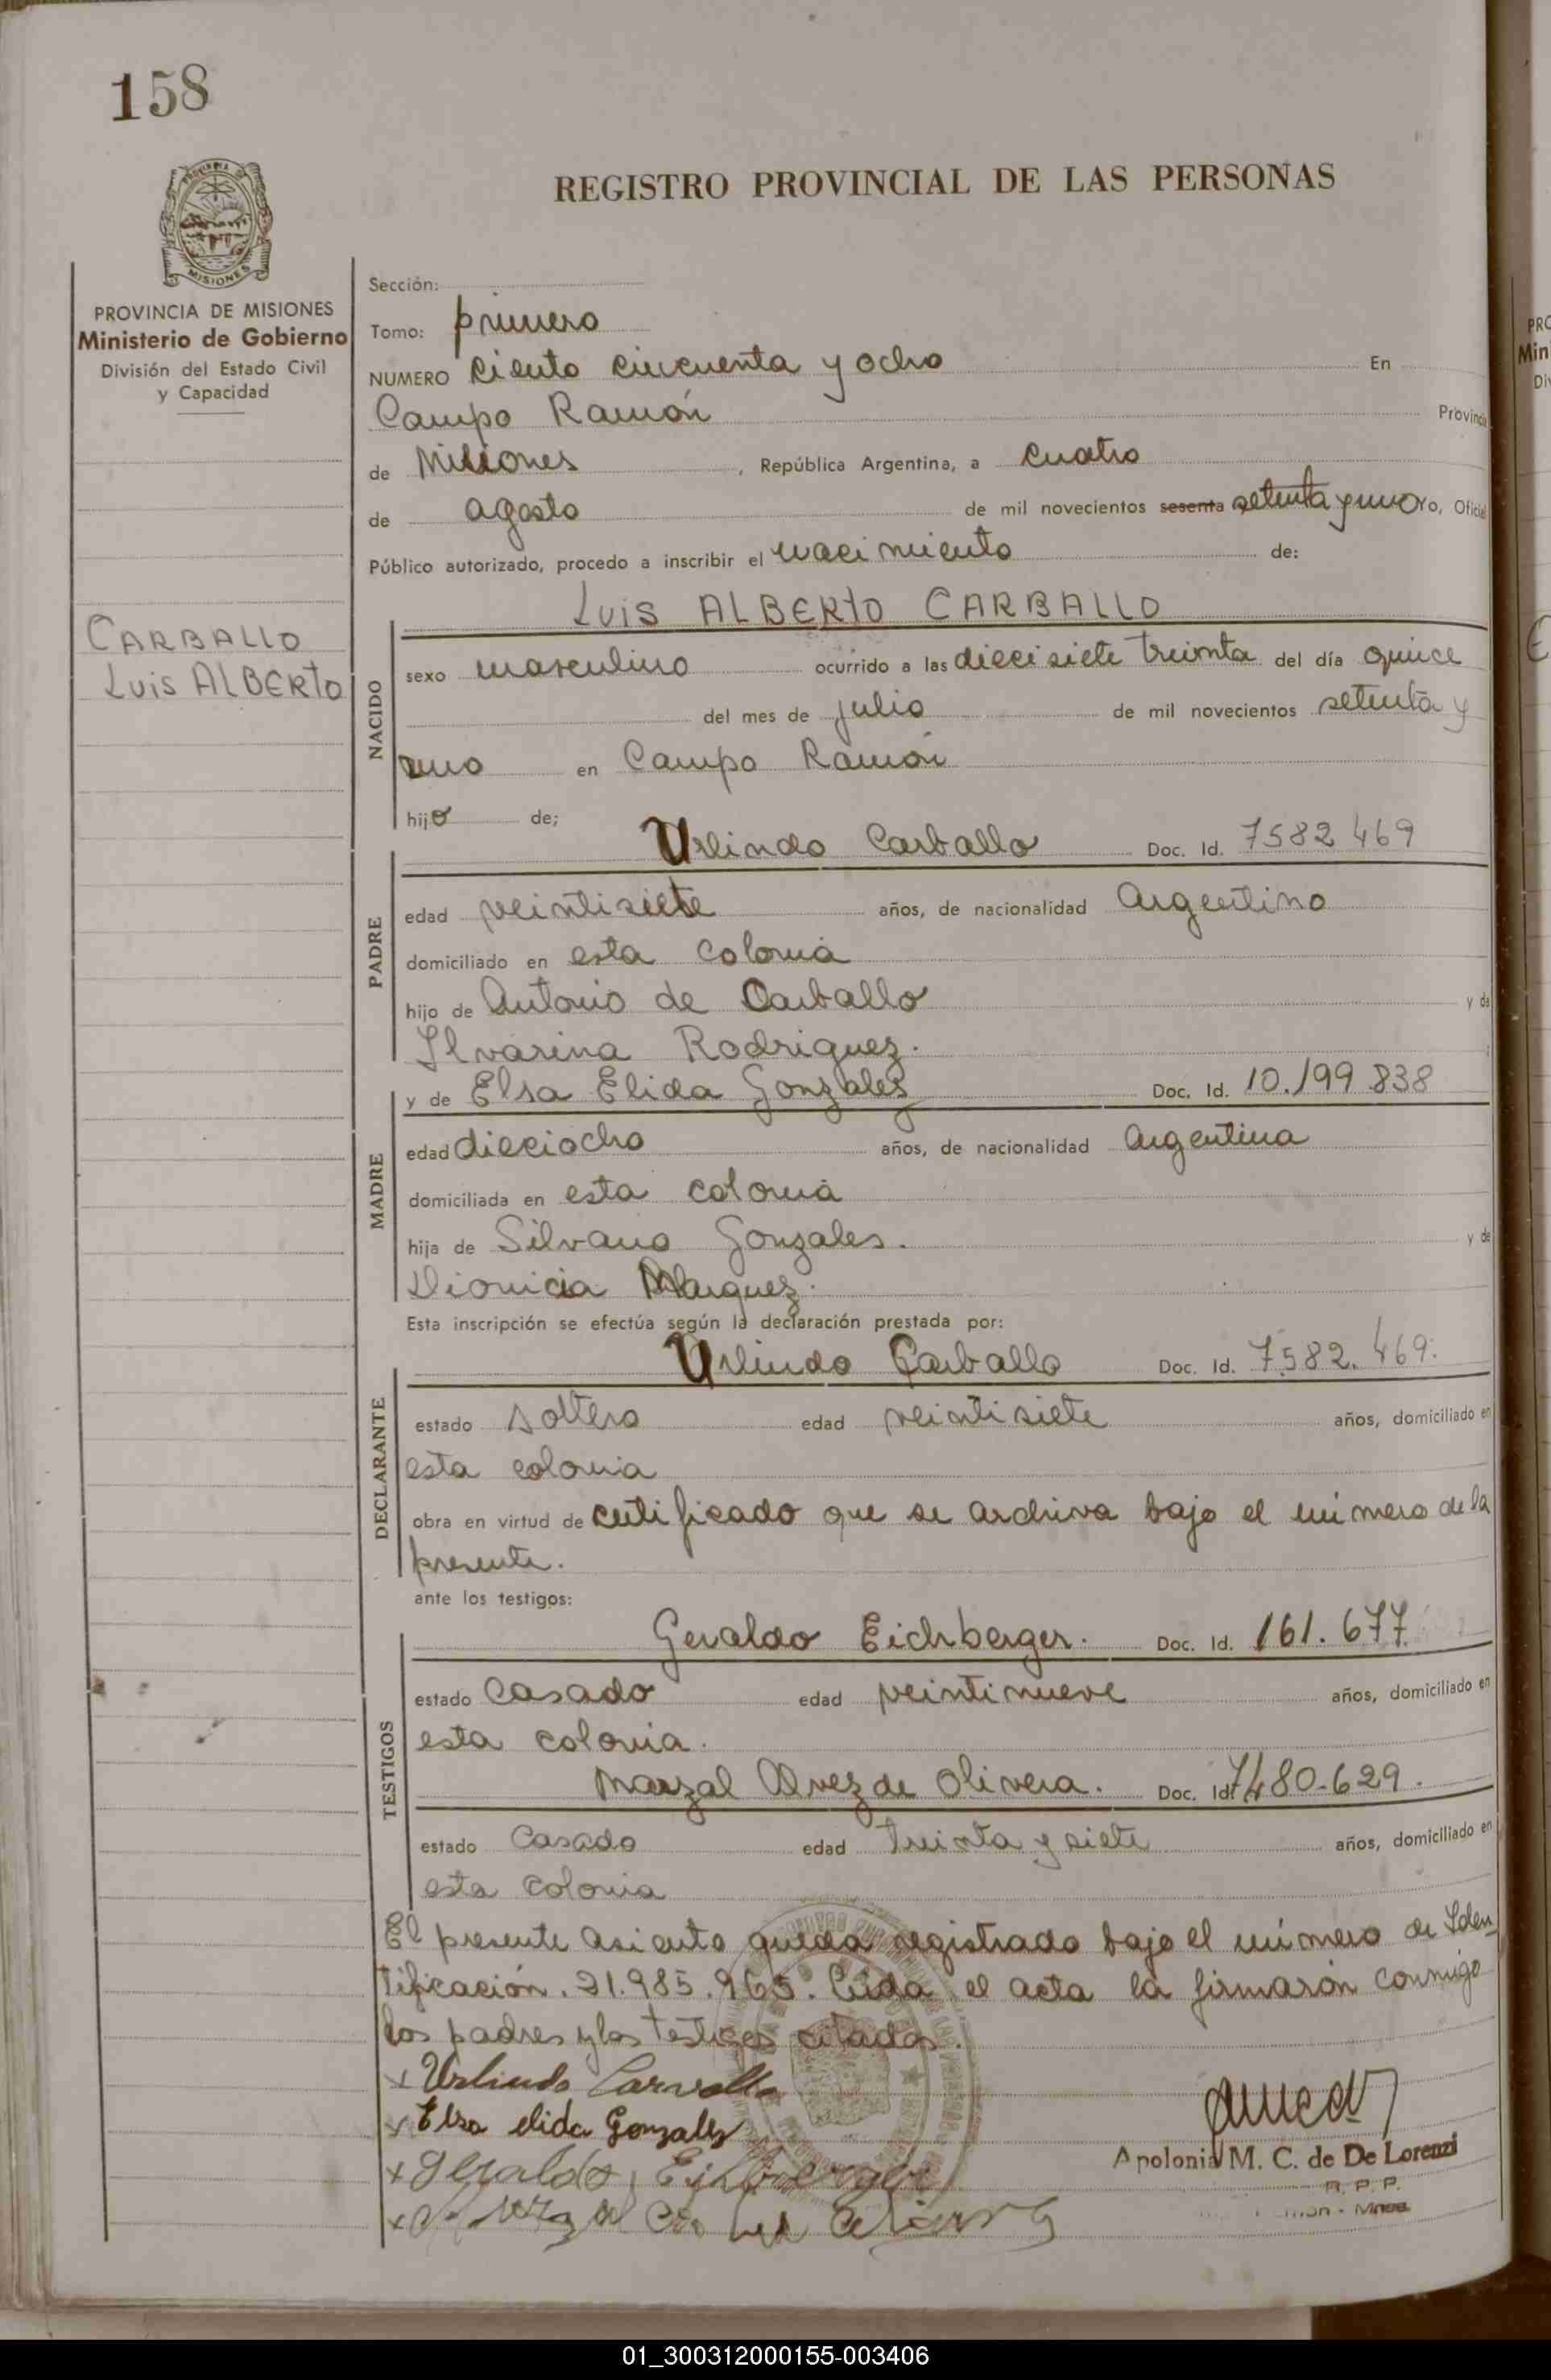 158
REGISTRO PROVINCIAL DE LAS PERSONAS
PROVINCIA DE
MISIONES
PROVINCIA DE MISIONES
Ministerio de Gobierno
División del Estado Civil
y Capacidad
CARBALLO
Luis ALBERTO
Sección:
Tomo: primero
NUMERO Ciento cincuenta y ocho En
Campo Ramón Provincia
de Misiones , República Argentina, a cuatro
de agosto de mil novecientos sesenta setenta y uno yo, Oficial
Público autorizado, procedo a inscribir el nacimiento de:
Luis ALBERTO CARBALLO
NACIDO
sexo masculino ocurrido a las diecisiete treinta del día quince
del mes de julio de mil novecientos setenta y
uno en Campo Ramón
hijo de;
Urlindo Carballo Doc. Id. 7582469
PADRE
edad veintisiete años, de nacionalidad Argentino
domiciliado en esta colonia
hijo de Antonio de Carballo y de
Ilvarina Rodriguez.
y de Elsa Elida Gonzalez Doc. Id. 10.199.838
MADRE
edad dieciocho años, de nacionalidad Argentina
domiciliada en esta colonia
hija de Silvano Gonzales. y de
Dionicia Marquez.
Esta inscripción se efectúa según la declaración prestada por:
Urlindo Carballo Doc. Id. 7.582.469.
DECLARANTE
estado soltero edad veintisiete años, domiciliado en
esta colonia
obra en virtud de certificado que se archiva bajo el número de la
presente.
ante los testigos:
Geraldo Eichberger. Doc. Id. 161.677
TESTIGOS
estado casado edad veintinueve años, domiciliado en
esta colonia.
Marzal Alvez de Olivera. Doc. Id. 7.480.629.
estado casado edad treinta y siete años, domiciliado en
esta colonia
El presente asiento queda registrado bajo el número de Iden
tificación. 21.985.965. Leida el acta la firmarón conmigo
los padres y los testigos citados.
x Urlindo Carvallo
x Elsa elida Gonzalez
x Geraldo Eichberger
x
Apolonia M. C. de De Lorenzi
R. P. P.
01_300312000155-003406